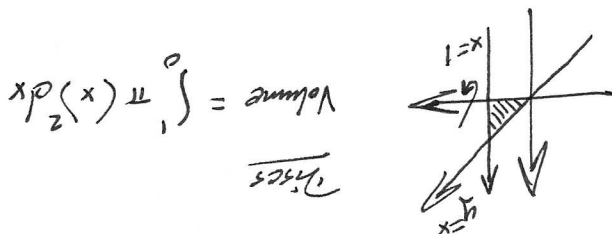 y=x
Discs
Volume = ∫₀¹ π (x)² dx
x=1